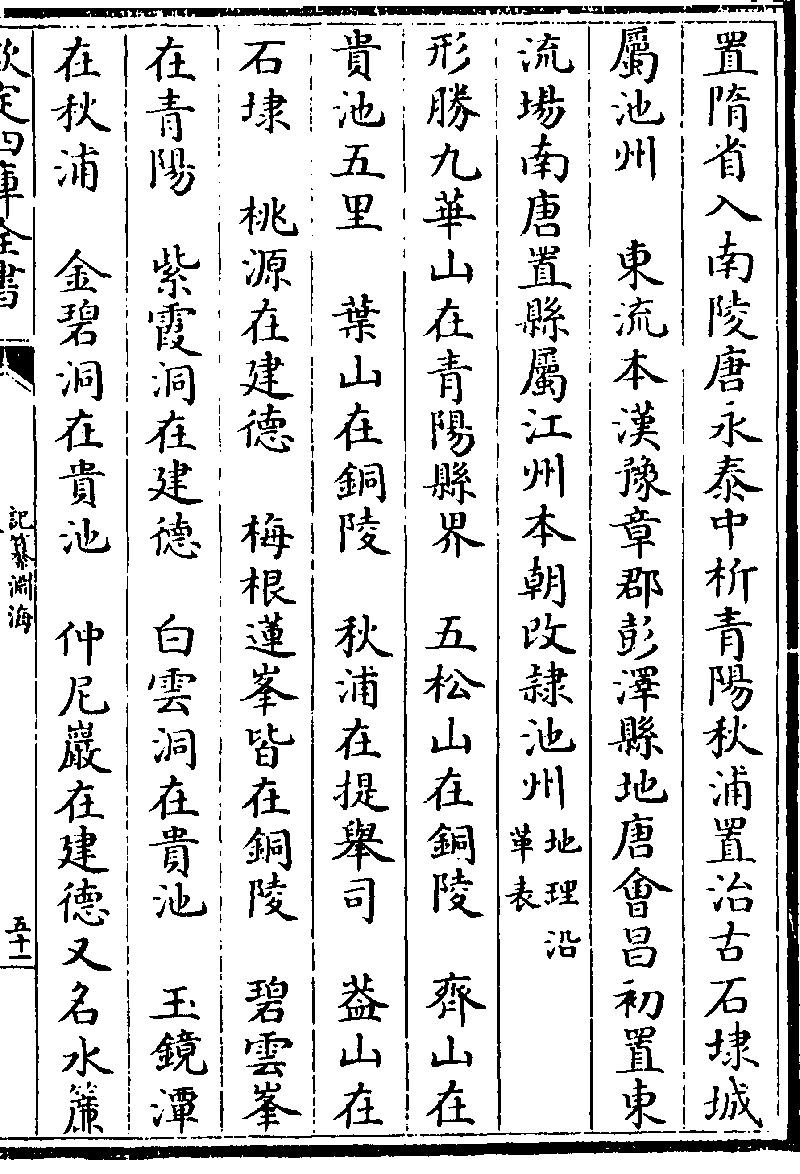 置隋省入南陵唐永泰中析青陽秋浦置治古石埭城
屬池州　東流本漢豫章郡彭澤縣地唐會昌初置東
流場南唐置縣屬江州本朝改隷池州地理沿革表
形勝九華山在青陽縣界　五松山在銅陵　齊山在
貴池五里　葉山在銅陵　秋浦在提舉司　葢山在
石埭　桃源在建德　梅根蓮峯皆在銅陵　碧雲峯
在青陽　紫霞洞在建德　白雲洞在貴池　玉鏡潭
在秋浦　金碧洞在貴池　仲尼巖在建德又名水簾
欽定四庫全書
記纂淵海
五十一